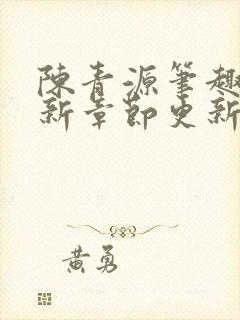 陳青源筆趣
新章節更新
黄勇